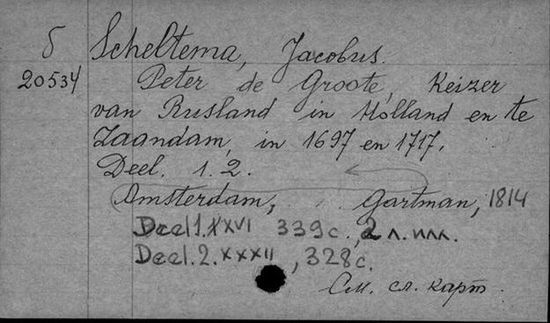 б Scheltema, Jacobus.
20534 Peter de Groote, Keizer
van Rusland in Holland en te
Zaandam, in 1697 en 1717.
Deel. 1. 2.
Amsterdam, Gartman, 1814
Deel 1. XXVI 339 с., 2 л. илл.
Deel. 2. XXXII, 328 с.
См. сл. карт.